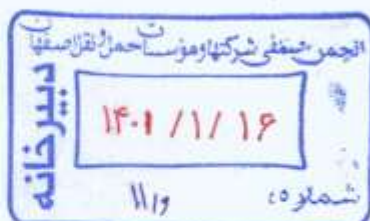 انجمن صنفی شرکتها و مؤسسات حمل و نقل اصفهان
دبیرخانه
۱۴۰۱ /۱/ ۱۶
شماره: